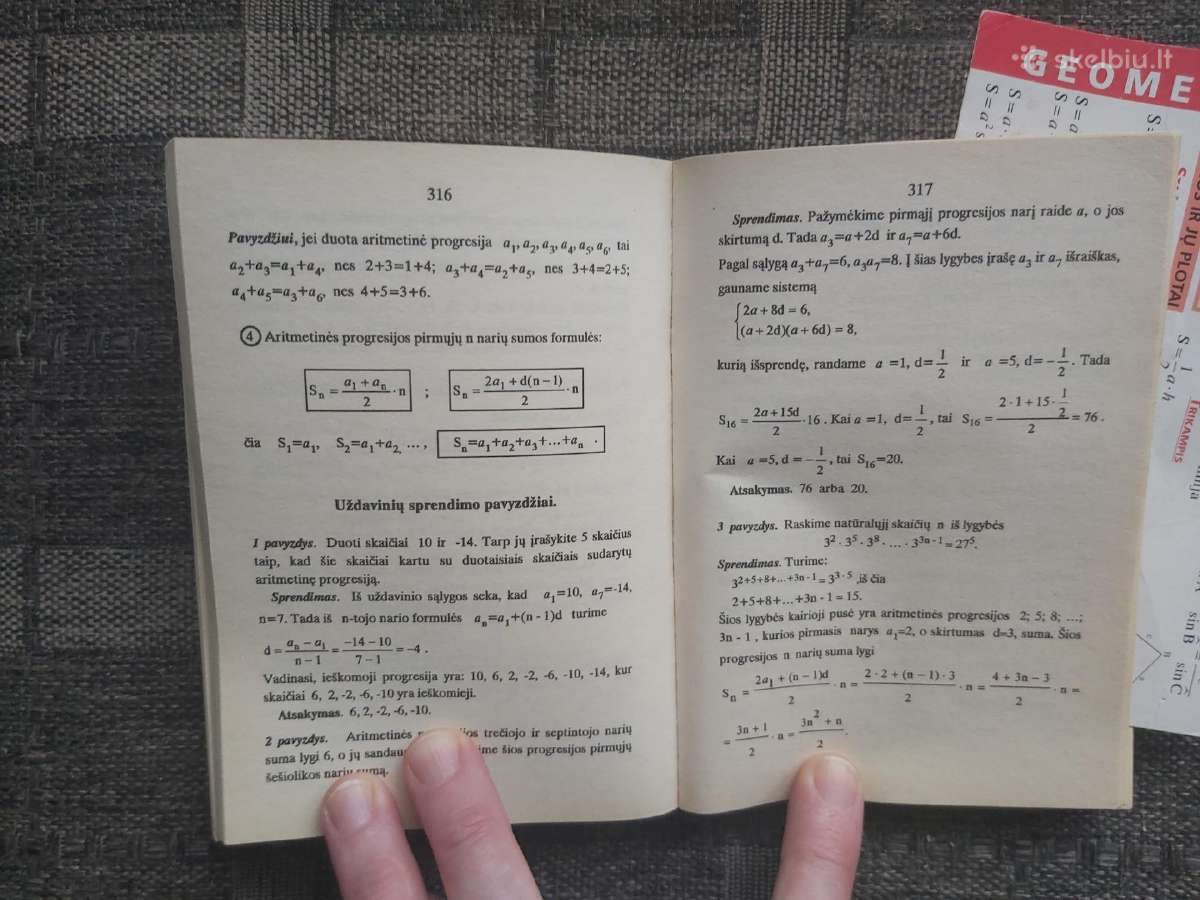 316
Pavyzdžiui, jei duota aritmetinė progresija a₁, a₂, a₃, a₄, a₅, a₆, tai
a₂+a₃=a₁+a₄, nes 2+3=1+4; a₃+a₄=a₂+a₅, nes 3+4=2+5;
a₄+a₅=a₃+a₆, nes 4+5=3+6.
④ Aritmetinės progresijos pirmųjų n narių sumos formulės:
Sₙ = (a₁ + aₙ)/2 · n ; Sₙ = (2a₁ + d(n − 1))/2 · n
čia S₁=a₁, S₂=a₁+a₂, ..., Sₙ=a₁+a₂+a₃+...+aₙ .
Uždavinių sprendimo pavyzdžiai.
1 pavyzdys. Duoti skaičiai 10 ir -14. Tarp jų įrašykite 5 skaičius
taip, kad šie skaičiai kartu su duotaisiais skaičiais sudarytų
aritmetinę progresiją.
Sprendimas. Iš uždavinio sąlygos seka, kad a₁=10, a₇=-14,
n=7. Tada iš n-tojo nario formulės aₙ=a₁+(n - 1)d turime
d = (aₙ − a₁)/(n − 1) = (−14 − 10)/(7 − 1) = −4 .
Vadinasi, ieškomoji progresija yra: 10, 6, 2, -2, -6, -10, -14, kur
skaičiai 6, 2, -2, -6, -10 yra ieškomieji.
Atsakymas. 6, 2, -2, -6, -10.
2 pavyzdys. Aritmetinės trečiojo ir septintojo narių
suma lygi 6, o jų šios progresijos pirmųjų
šešiolikos narių sumą.
317
Sprendimas. Pažymėkime pirmąjį progresijos narį raide a, o jos
skirtumą d. Tada a₃=a+2d ir a₇=a+6d.
Pagal sąlygą a₃+a₇=6, a₃a₇=8. Į šias lygybes įrašę a₃ ir a₇ išraiškas,
gauname sistemą
{ 2a + 8d = 6,
(a + 2d)(a + 6d) = 8,
kurią išsprendę, randame a =1, d= 1/2 ir a =5, d= − 1/2 . Tada
S₁₆ = (2a + 15d)/2 · 16 . Kai a =1, d= 1/2 , tai S₁₆ = (2 · 1 + 15 · 1/2)/2 = 76 .
Kai a =5, d = − 1/2 , tai S₁₆=20.
Atsakymas. 76 arba 20.
3 pavyzdys. Raskime natūralųjį skaičių n iš lygybės
3² · 3⁵ · 3⁸ · ... · 3³ⁿ⁻¹ = 27⁵.
Sprendimas. Turime:
3^(2+5+8+...+3n - 1) = 3^(3·5) ,iš čia
2+5+8+...+3n - 1 = 15.
Šios lygybės kairioji pusė yra aritmetinės progresijos 2; 5; 8; ...;
3n - 1 , kurios pirmasis narys a₁=2, o skirtumas d=3, suma. Šios
progresijos n narių suma lygi
Sₙ = (2a₁ + (n − 1)d)/2 · n = (2 · 2 + (n − 1) · 3)/2 · n = (4 + 3n − 3)/2 · n =
= (3n + 1)/2 · n = (3n² + n)/2 .
skelbiu.lt
GEOME
IR JŲ PLOTAI
TRIKAMPIS
S = 1/2 a · h
sin B
sin C